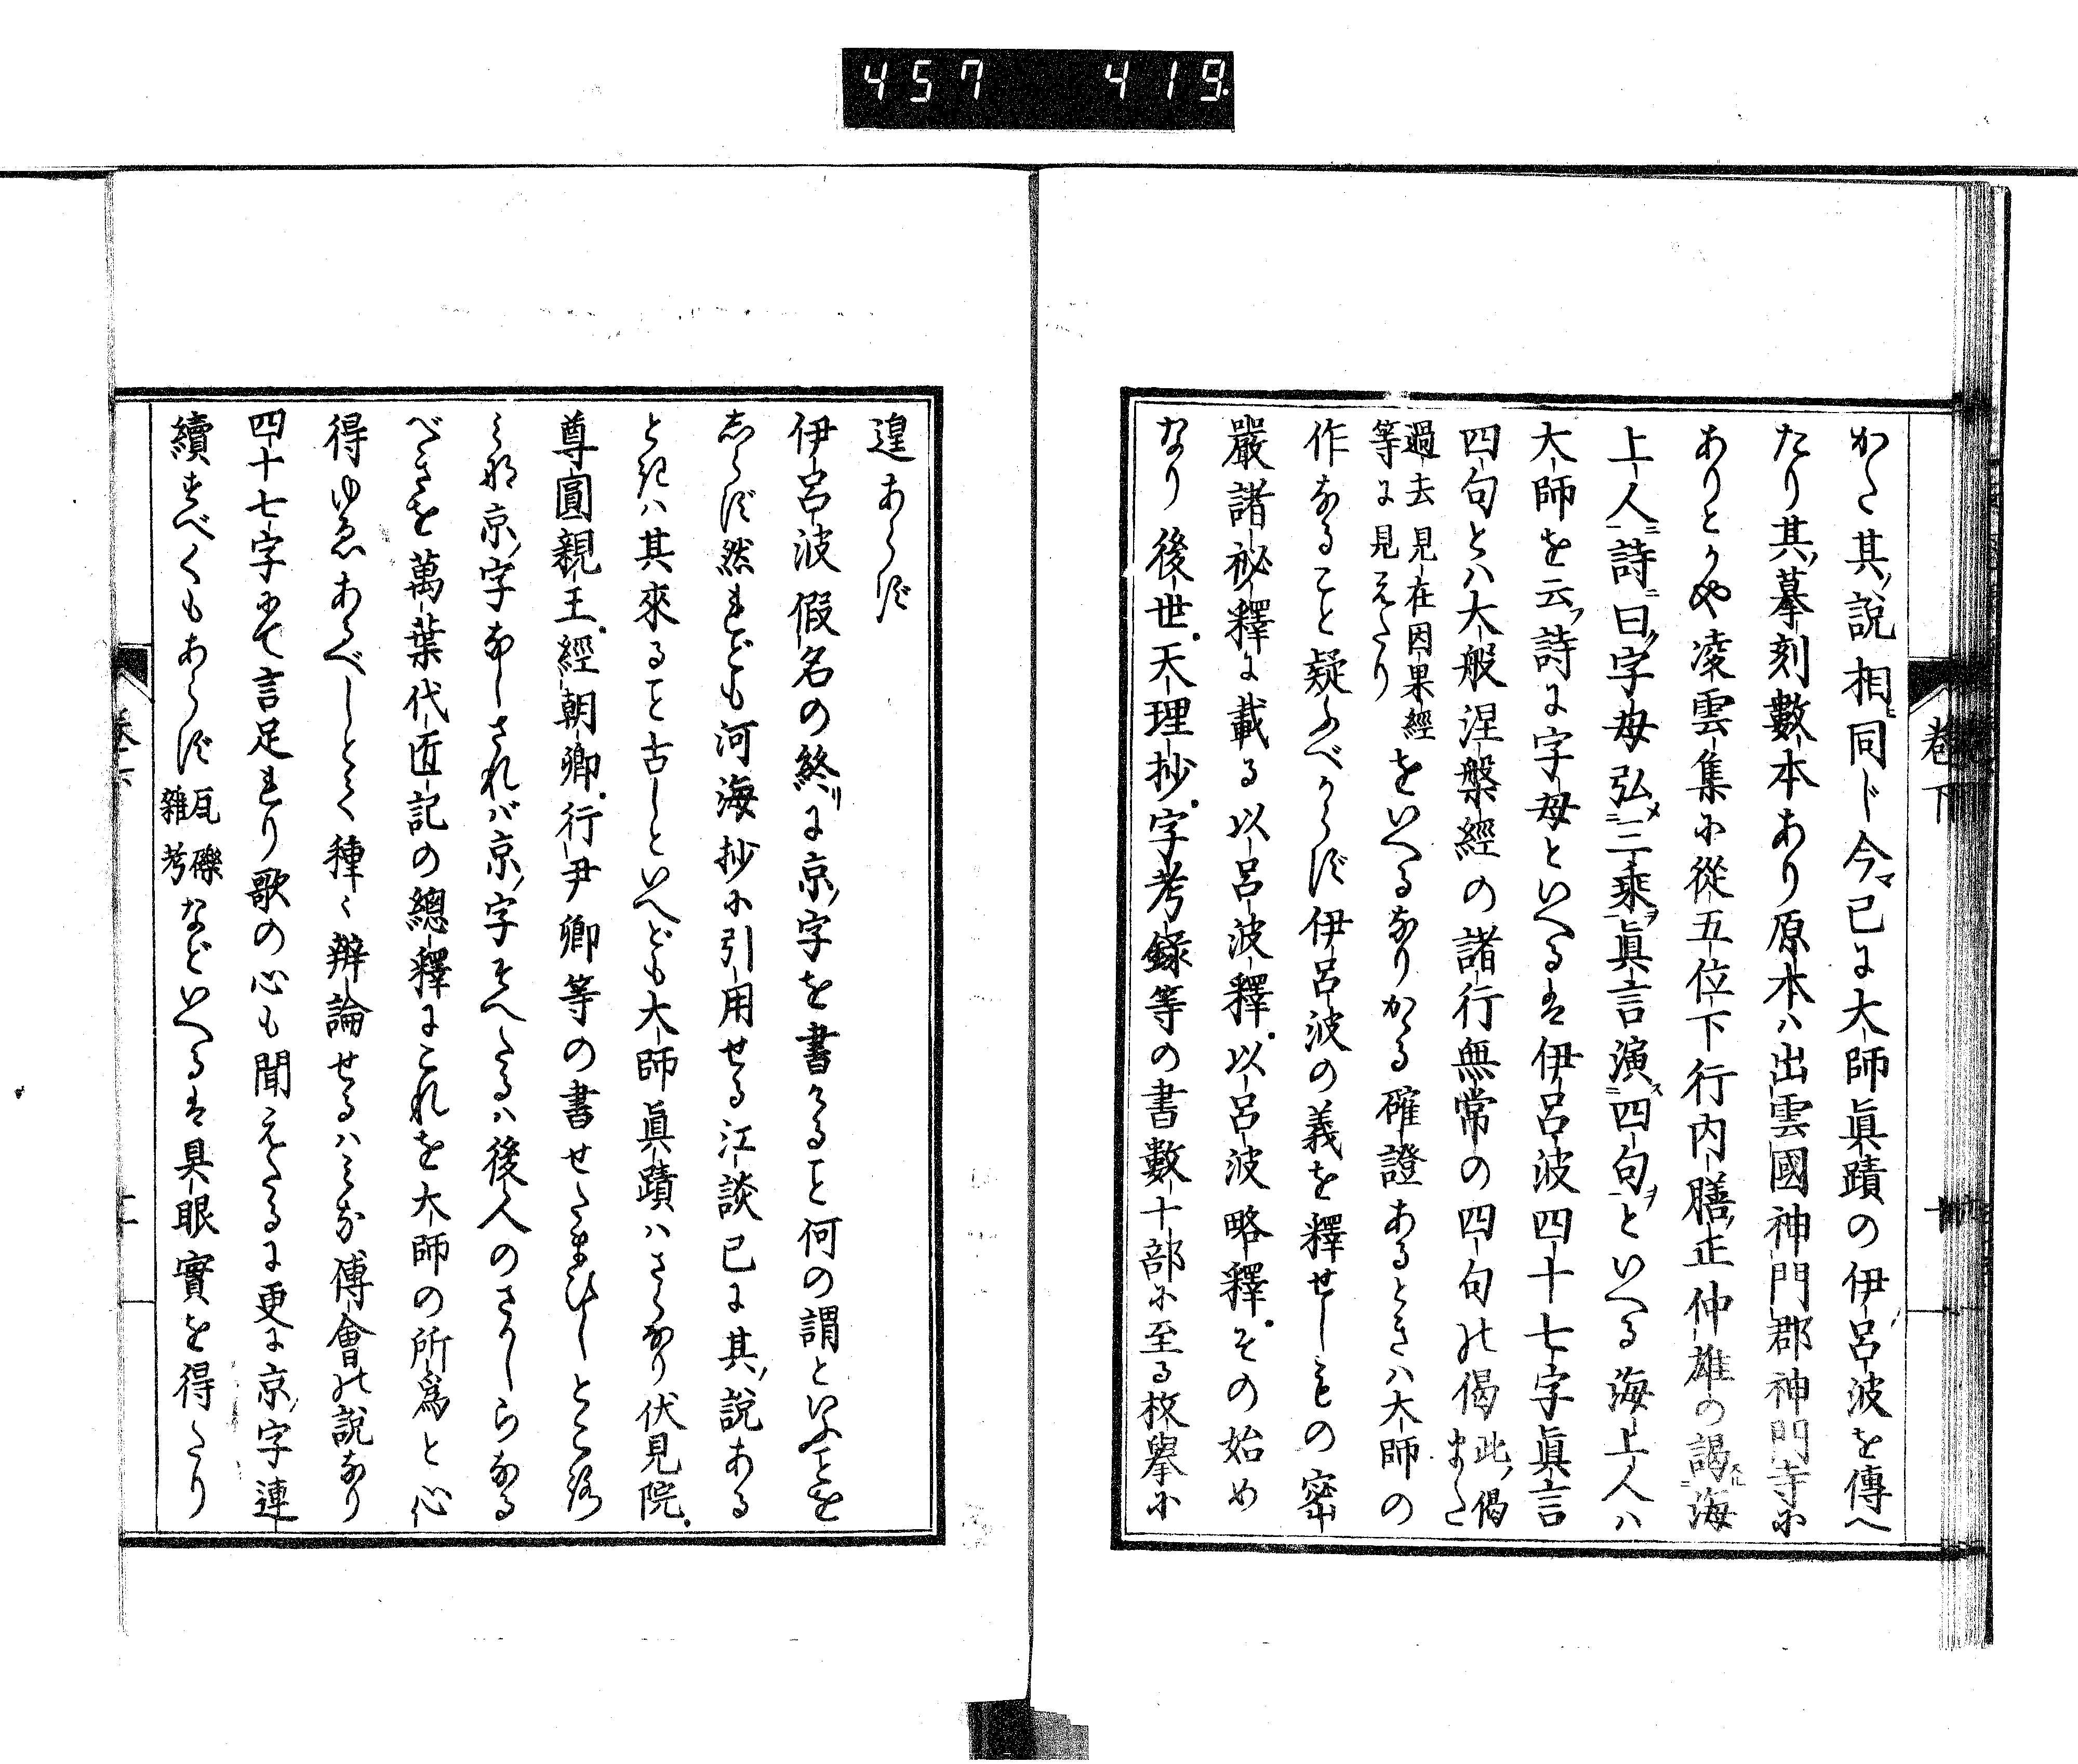 457 419
巻下
かく其ノ説相ヒ同じ今マ已に大師眞蹟の伊呂波を傳へ
たり其ノ摹刻數本あり原本ハ出雲國神門郡神門寺に
ありとかや凌雲集に從五位下行内膳ノ正仲雄の謁スル二海
上人ニ一詩ニ曰ク字母弘メ二三乘ヲ一眞言演ス二四句ヲ一といへる海上人ハ
大師を云フ詩に字母といへるは伊呂波四十七字眞言
四句とハ大般涅槃經の諸行無常の四句の偈此ノ偈また
過去見在因果經
等に見えたり
をいへるなりかゝる確證あるときハ大師の
作なること疑ふべからず伊呂波の義を釋せしものの密
嚴諸祕釋に載る以呂波釋以呂波略釋その始め
なり後世天理抄字考録等の書數十部に至る枚擧に
遑あらず
伊呂波假名の終リに京ノ字を書ること何の謂といふことを
しらず然れども河海抄に引用せる江談已に其ノ説ある
ときハ其來ること古しといへども大師眞蹟ハさらなり伏見院
尊圓親王經朝卿行尹卿等の書せたまひしところ
みな京ノ字なしされバ京ノ字そへたるハ後人のさかしらなる
べきを萬葉代匠記の總釋にこれを大師の所爲と心
得ゆゑあるべしとて種々辨論せるハみな傅會の説なり
四十七字にて言足れり歌の心も聞えたるに更に京ノ字連
續すべくもあらず瓦礫
雜考
などいへるは具眼實を得たり